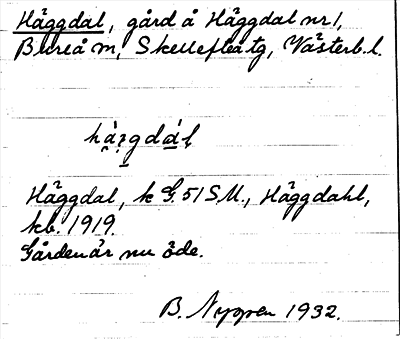 Häggdal, gård å Häggdal nr 1,
Bureå m, Skellefteå tg, Västerb. l.
Häggdal, k G. 51 S.V., Häggdahl,
kb. 1919.
Gården är nu öde.
B. Nygren 1932.